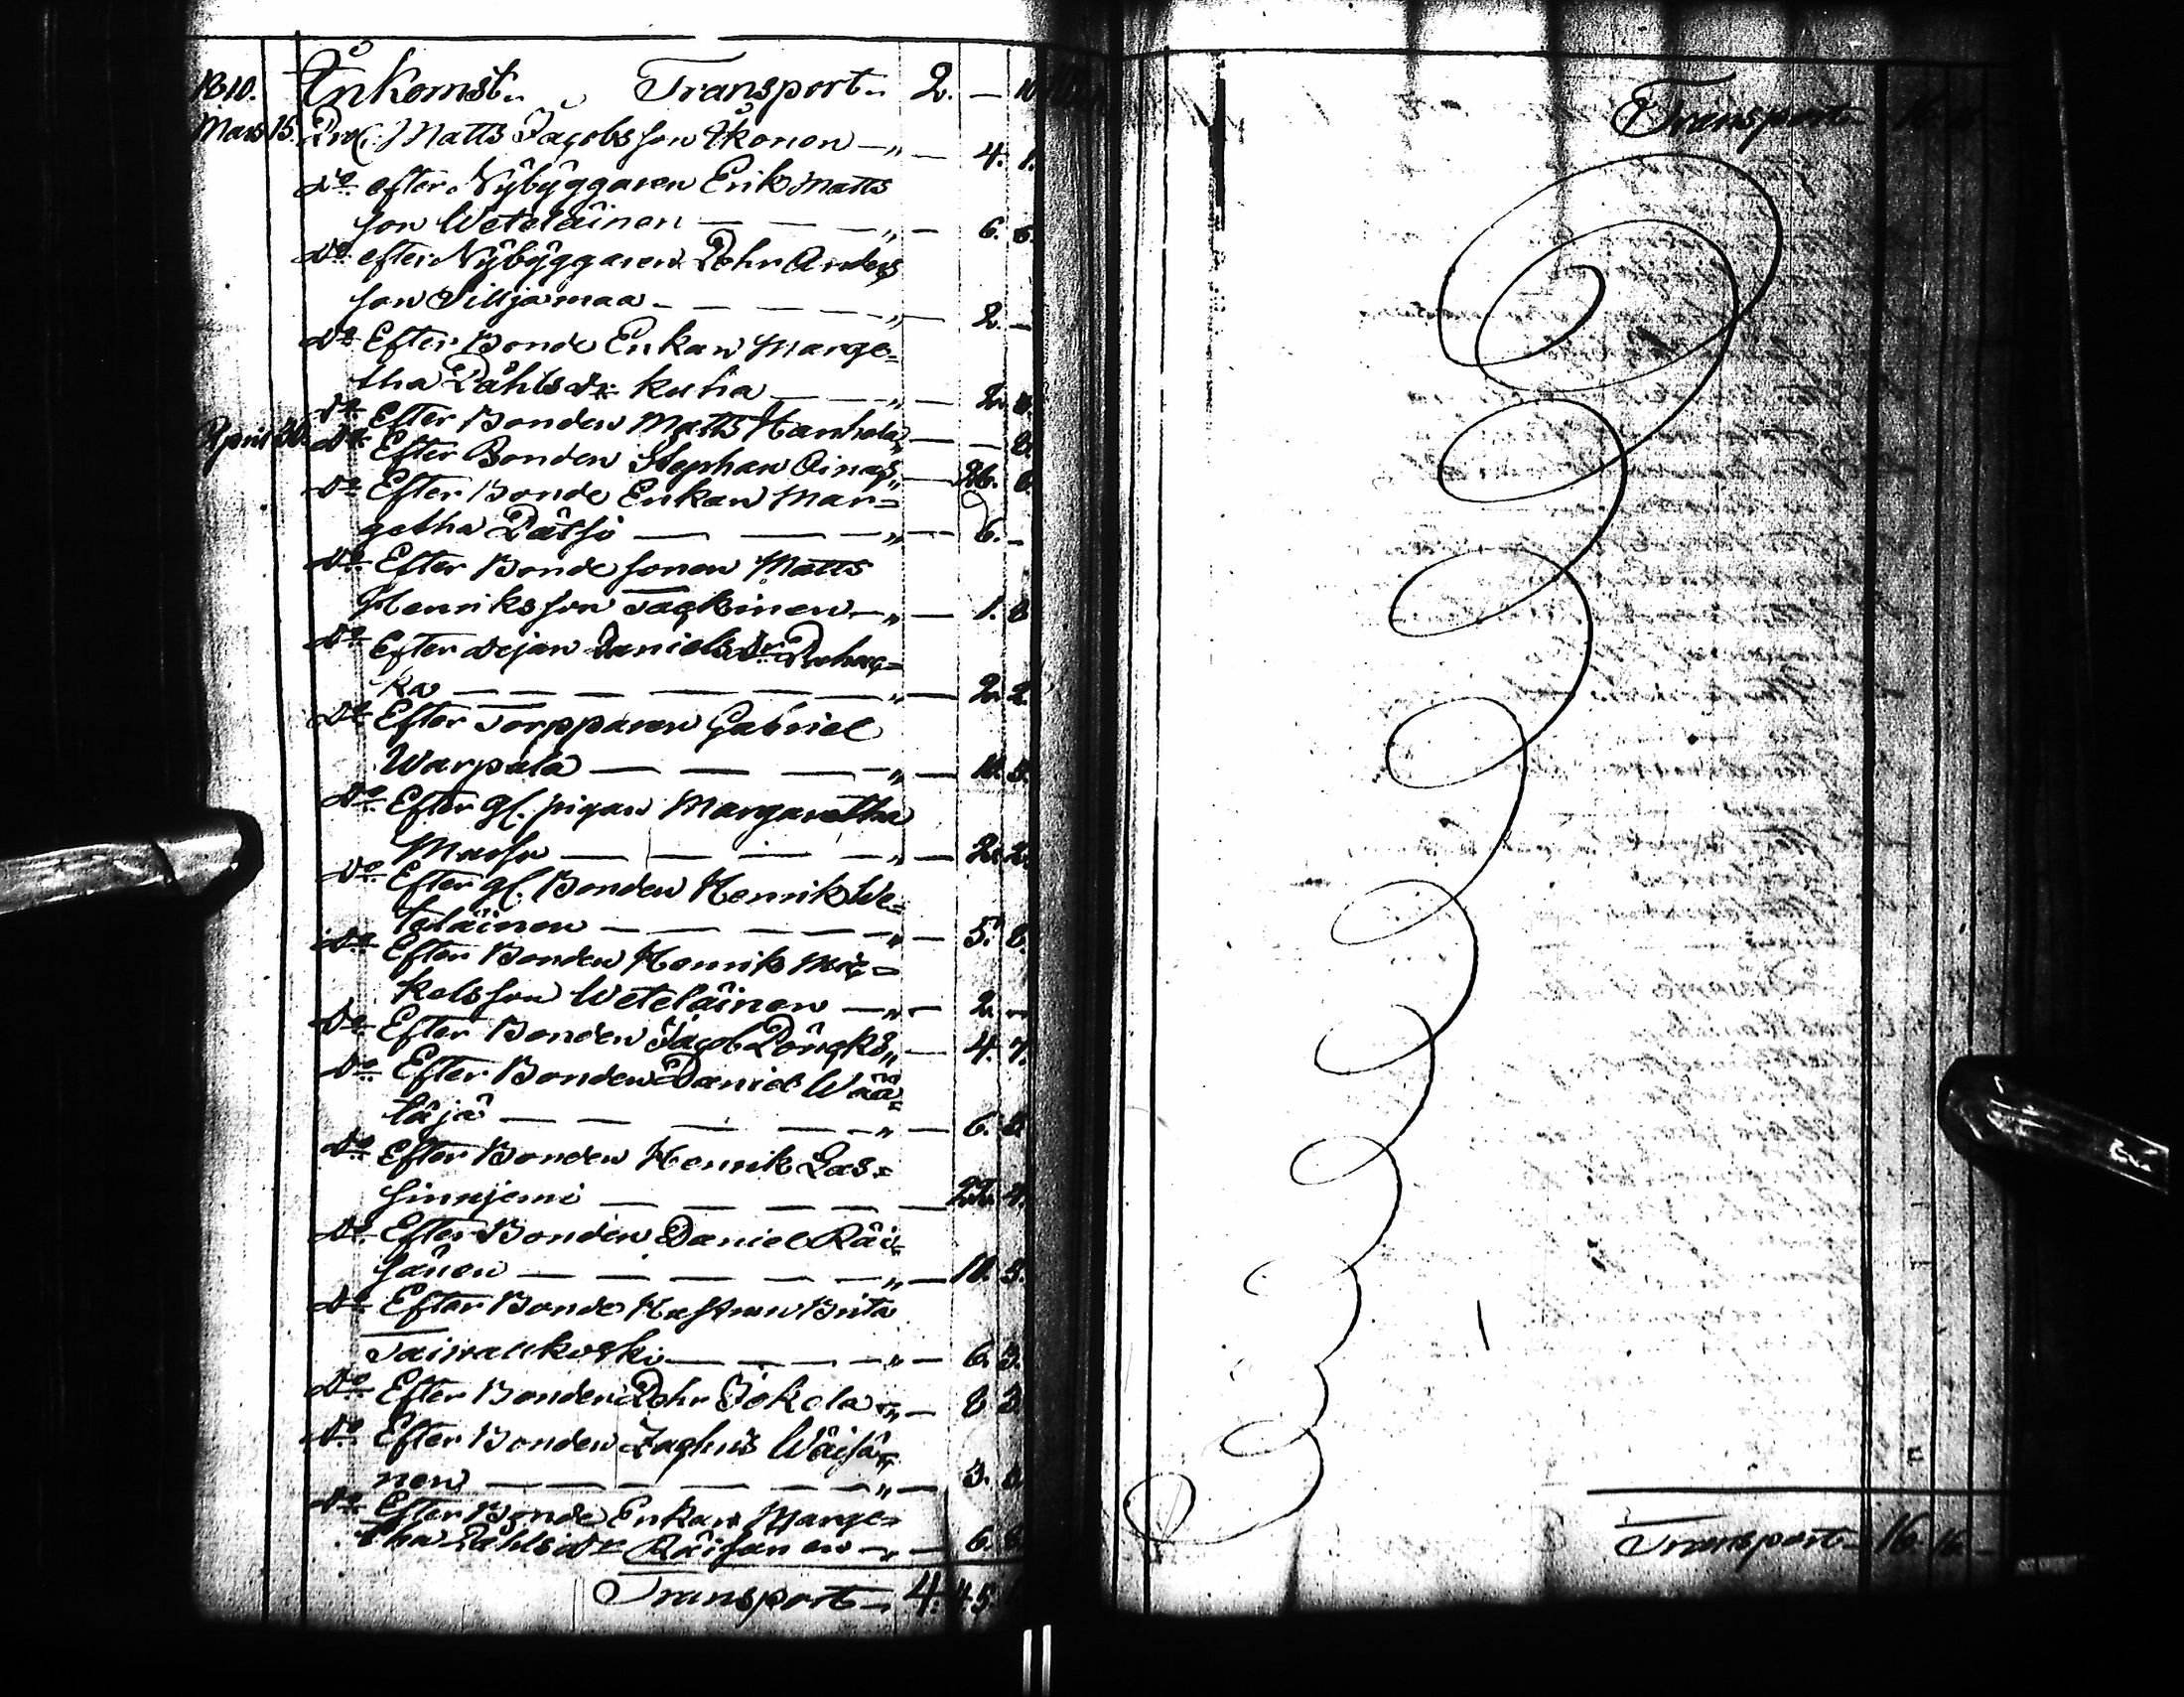 1810. Inkomst. Transport 2. — 10
Mars 15. Matts Jacobsson Ikonen — „ — 4. 1.
do efter Nybÿggaren Erik Matts
son Weteläinen — — „ — 6. 6.
do efter Nybÿggaren Pehr Anders
son Siljamaa — — „ — 2. —
do Efter Bonde Enkan Marge=
tha Påhlsdr Kuha — — „ — 2.
do Efter Bonden Matts Hanhola „ — — 8.
April do Efter Bonden Stephan Ainas „ — 26.
do Efter Bonde Enkan Mar=
getha Pätsi — — „ — 6. —
do Efter Bonde sonen Matts
Henriksson Tackinen — „ — 1. 8
do Efter Dejan Danielsdr
ka — — — „ — 2. 2.
do Efter Torpparen Gabriel
Warpala — — — „ — 10. 5.
do Efter gl. pigan Margaretha
— — — „ — 2. 2.
do Efter gl. Bonden Henrik We=
teläinen — — — „ — 5. 8.
do Efter Bonden Henrik Mic=
kelsson Weteläinen — „ — 2. —
do Efter Bonden Jacob „ — 4. 7.
do Efter Bonden Daniel Wää=
täjä — — — „ — 6. 2
do Efter Bonden Henrik Las=
sinniemi — — — 22. 4.
do Efter Bonden Daniel Räi=
sänen — — — „ — 10. 5.
do Efter Bonde Hustrun Brita
Taiwallkoski — — „ — 6. 3.
do Efter Bonden Pehr Jokela „ — 8 3
do Efter Bonden Zachris Wäisä=
nen — — — „ — 3. 8
do Efter Bonde Enkan Marge=
tha Påhlsdr Räisänen — „ — 6. 6
Transport 4. 45.
Transport 16. 16 —
Transport 16. 16. —